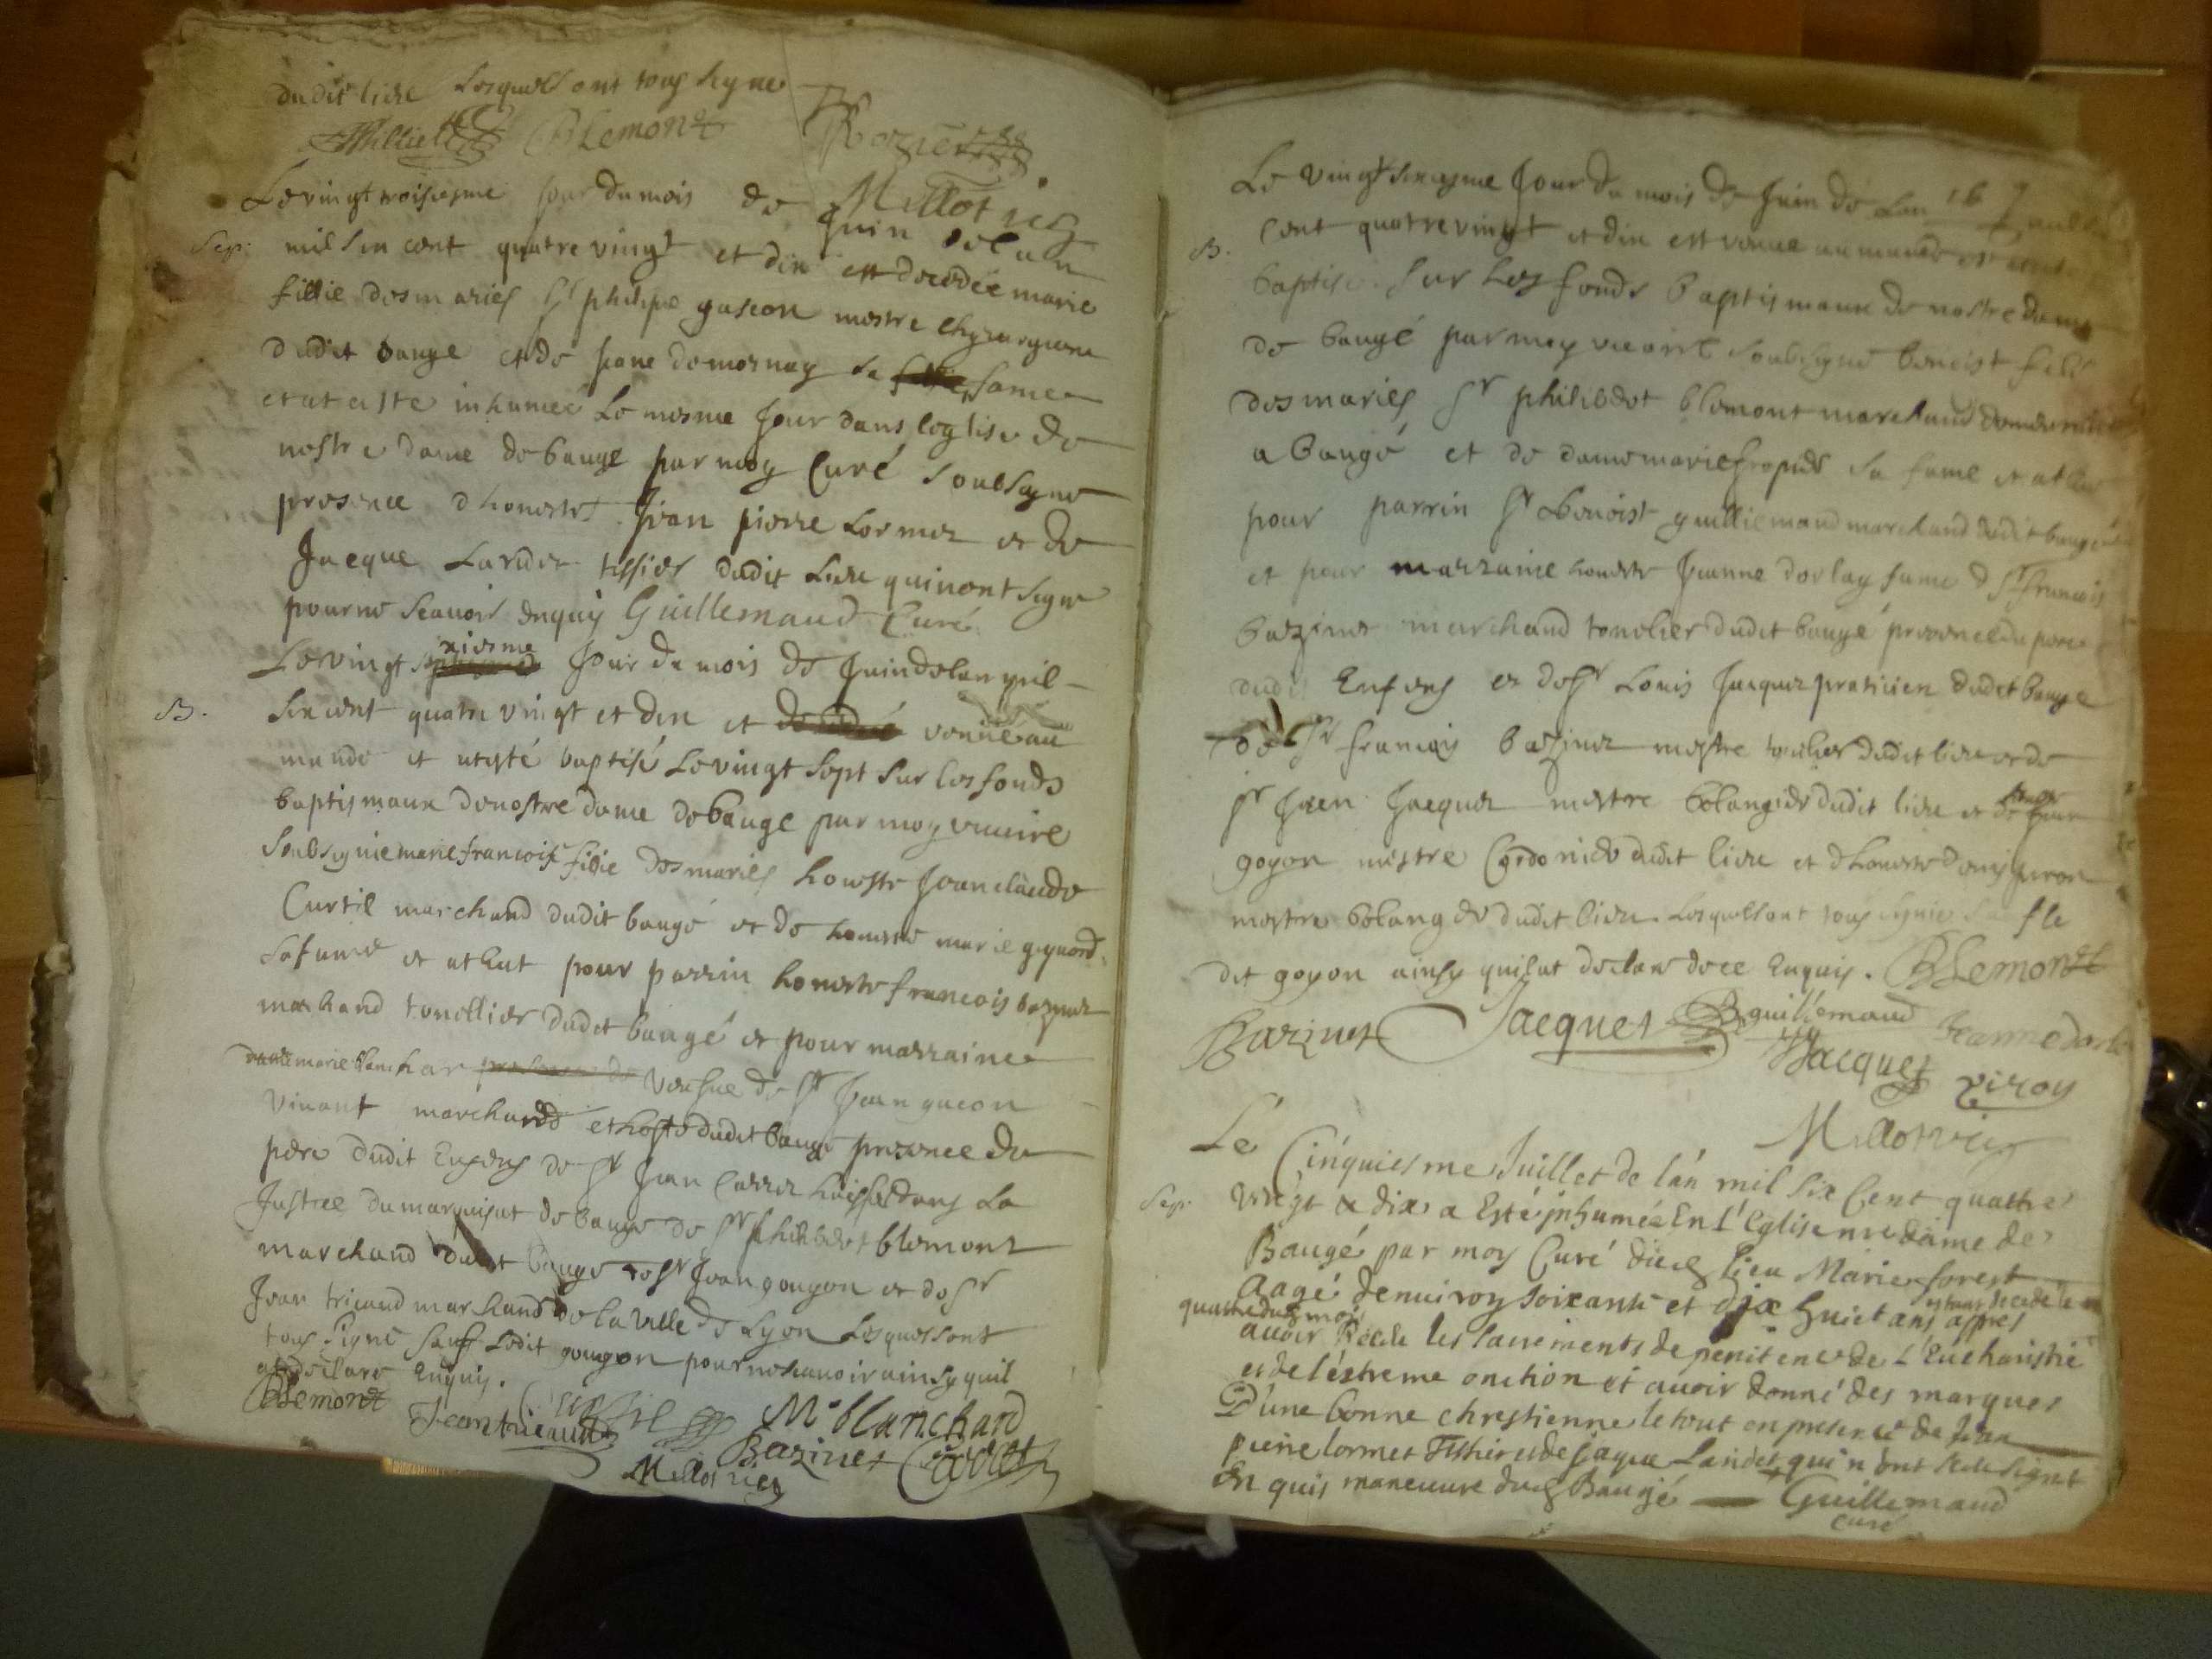 dudit lieu Lesquels ont tous signe
Blemont Rozier
Millot vic
Le vingt troisiesme jour du mois de Juin de lan
Sep: mil six cent quatre vingt et dix est decedée marie
fillie des mariés Sr philipe gascon mestre chyrurgien
dudit bauge et de jane demornay sa fame
et at este inhumée Le mesme Jour dans leglise de
nostre dame de bauge par moy Curé soubsigne
presence d honestes Jean pierre Lormet et de
Jacque Lardet tissier dudit Lieu qui nont signe
pour ne scavoir enquis Guillemaud Curé
Le vingt sixiesme Jour du mois de Juin de lan mil
B. six cent quatre vingt et dix et venue au
monde et at esté baptisé Le vingt sept sur les fonds
baptismaux de nostre dame de bauge par moy vicaire
soubsigné marie francoise fillie des mariés honeste Jean claude
Curtil marchand dudit baugé et de honeste marie
sa fame et at heut pour parrin honeste francois bazinet
marchand tonellier dudit baugé et pour marraine
dame marie blanchar veufue de Sr Jean gacon
vivant marchand et hoste dudit bauge presence du
pere dudit Enfens de Sr Jean Carret dans La
Justice du marquisat de bauge de Sr philibert blemont
marchand dudit bauge de Sr Jean gougon et de Sr
Jean tricaud marchand de la ville de Lyon Lesquels ont
tous signe sauf Ledit gougon pour ne scavoir ainsy quil
at declare Enquis.
Blemont Jean tricaud Curtil M. blanchard
Bazinet
Millot vic
Le vingt sixiesme Jour du mois de Juin de Lan
B. cent quatre vingt et dix est venue au monde et
baptisé sur Les fonds baptismaux de nostre dame
de baugé par moy vicaire soubsigné benoist fils
des mariés Sr philibert blemont marchand
a baugé et de dame marie sa fame et at heu
pour parrin Sr benoist guilliemaud marchand dudit baugé
et pour marraine honeste Jeanne dorlay fame d Sr francois
bazinet marchand tonelier dudit baugé presence du pere
dudit Enfens et de Sr Louis Jacquet praticien dudit bauge
de Sr francois bazinet mestre tonelier dudit lieu et de
Sr Jean Jacquet mestre bolangier dudit lieu et de
goyon mestre Cordonier dudit lieu et d honeste denis
mestre bolanger dudit lieu Lesquels ont tous signé sauf le
dit goyon ainsy quil at declare de ce Enquis. Blemont
Bazinet Jacquet B guillemaud Jeanne dorlay
Jacquet
Millot vic
Le Cinquiesme Juillet de lan mil six Cent quattre
Sep: vingt & dix a Esté inhumée En l'Eglise nre dame de
Baugé par moy Curé dud lieu Marie forest
aagé denviron soixante et dix huict ans estant decede le
quattre dud mois appres
avoir Receu les sacrements de penitence de l'Eucharistie
et de l'extreme onction et avoir donné des marques
D'une bonne chrestienne le tout en presence de Jean
pierre lormet Tissier et de Jaque Lardet qui n'ont sceu signé
En quis maneuvre dud Baugé Guillemaud
curé